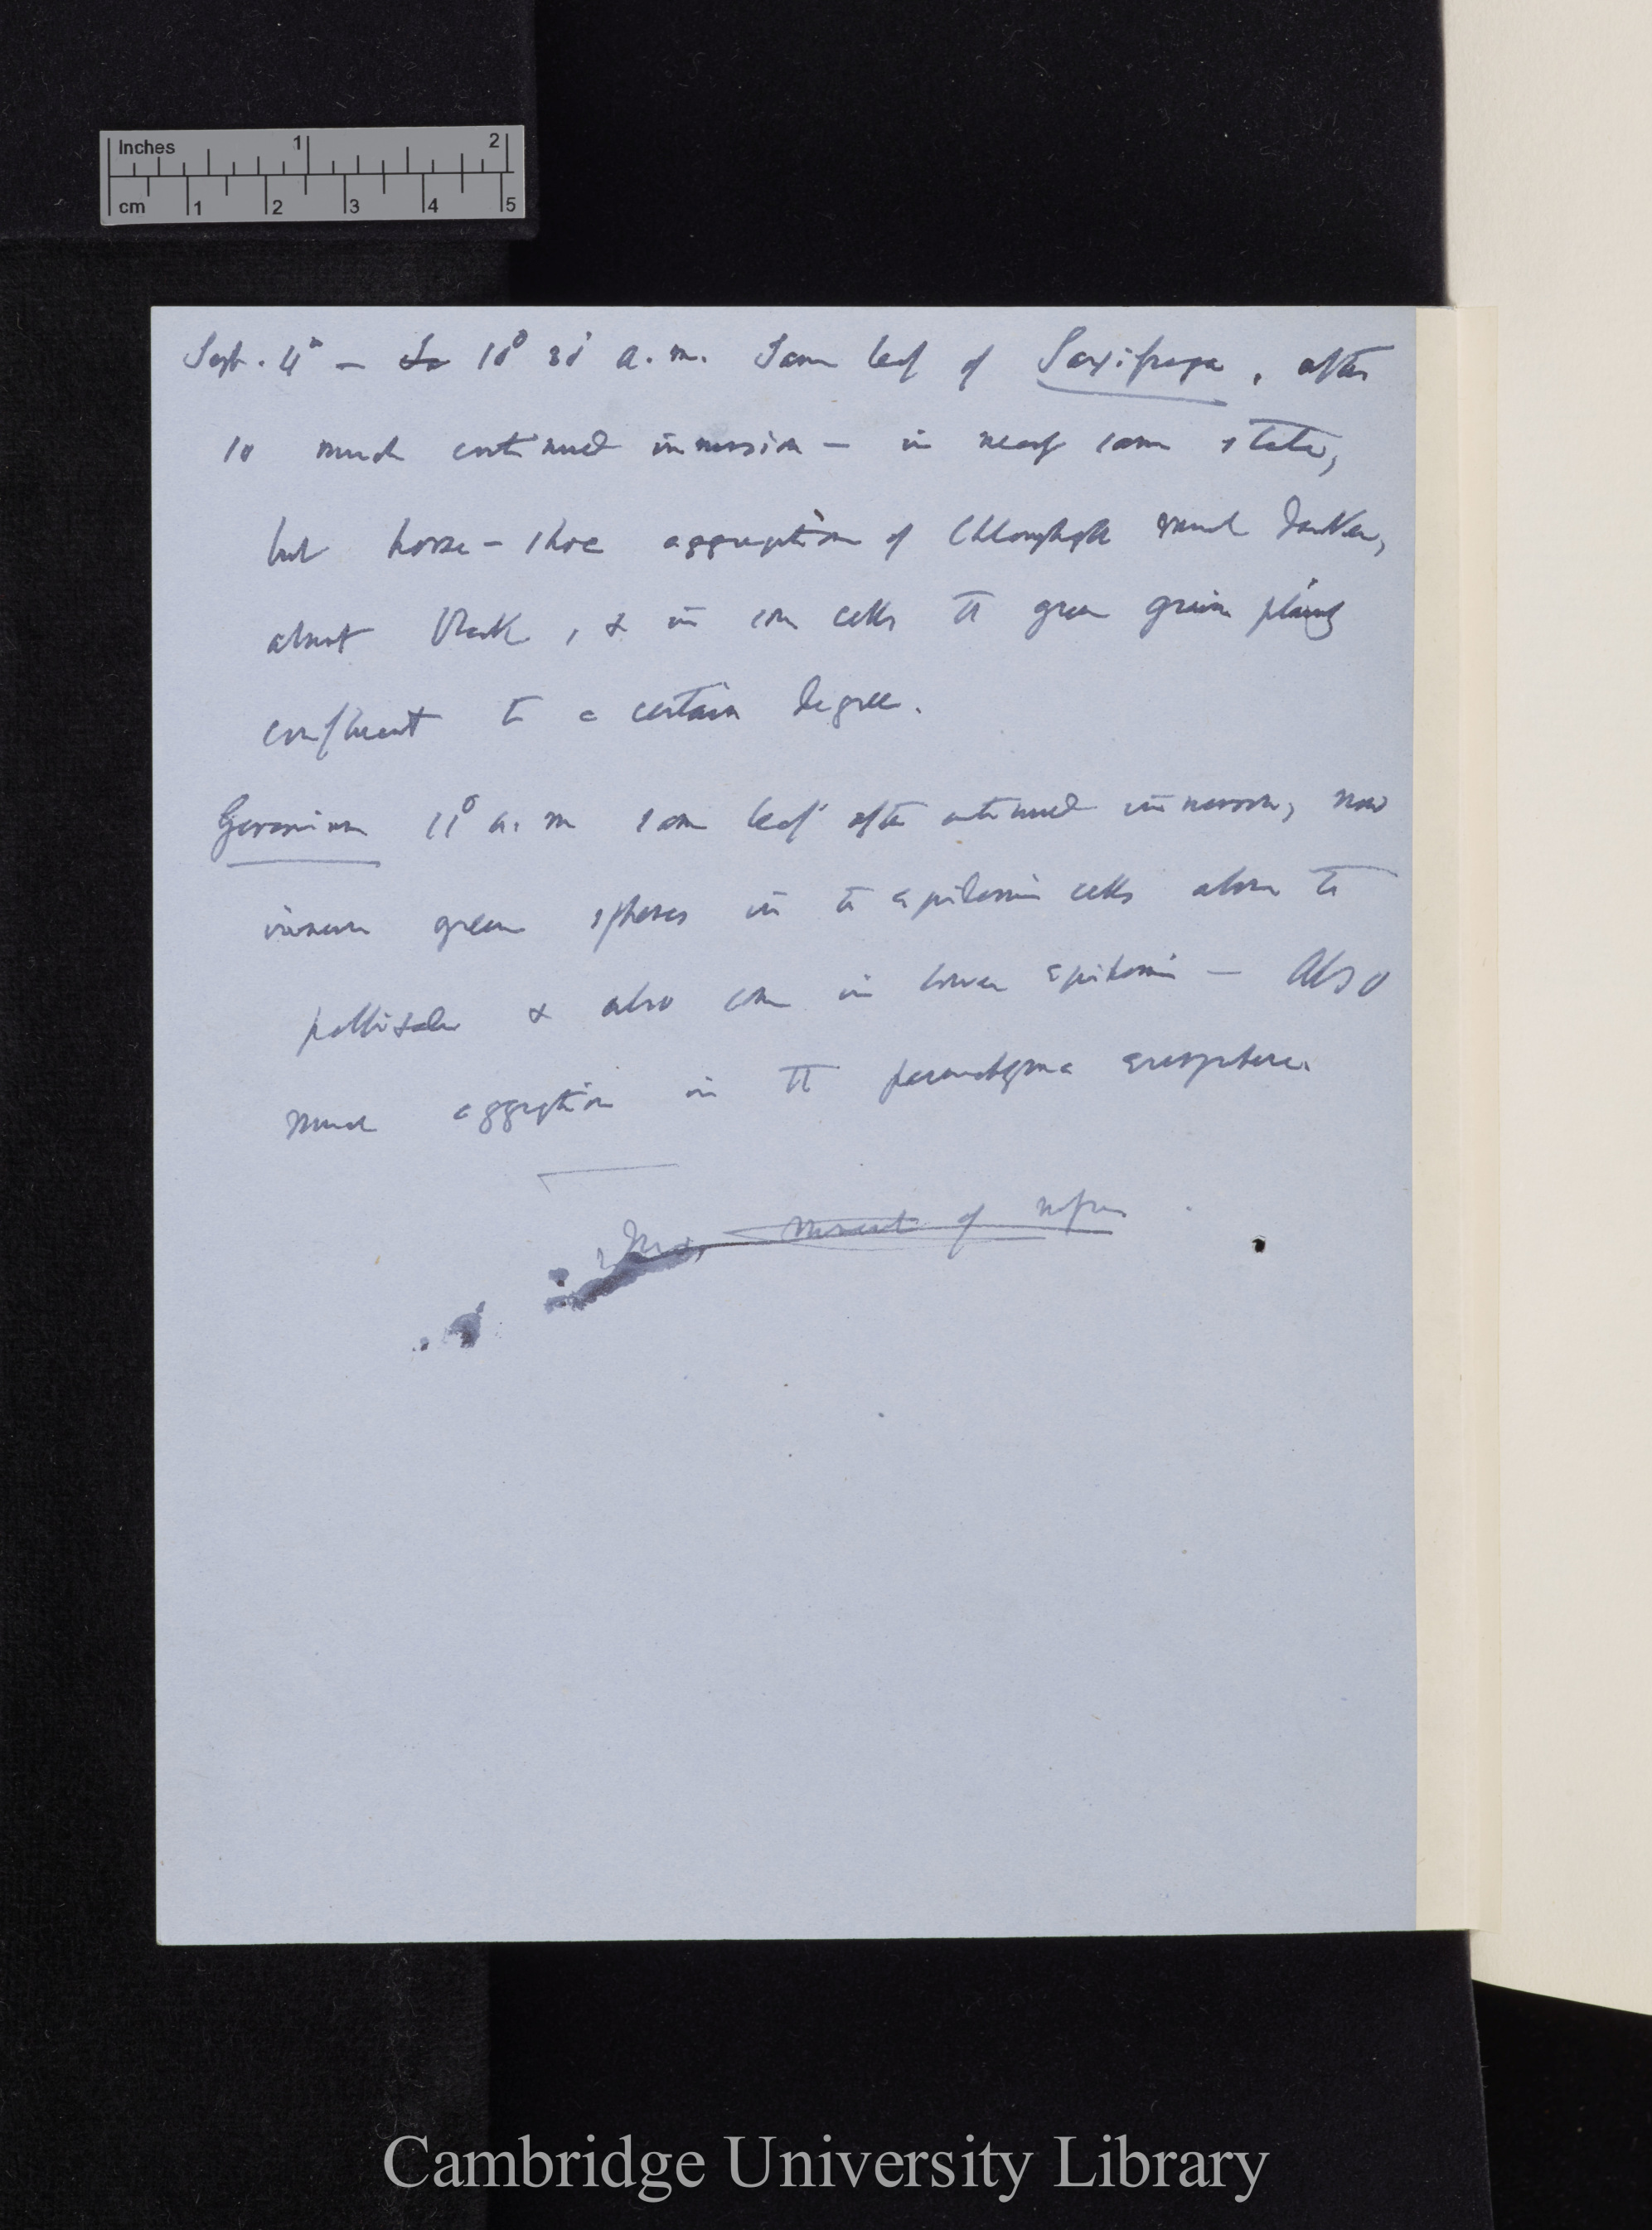 Inches 1 2
cm 1 2 3 4 5
Sept. 4° — So 10° 30' a.m. Same leaf of Saxifraga, after
so much continued immersion — in nearly same state,
but horse-shoe aggregation of Chlorophyll much darker,
almost black, & in some cells the green grains plainly
confluent to a certain degree.
Geranium 11° a.m same leaf after continued immersion, now
green spheres in the epidermic cells above the
& also some in lower epidermis — Also
much aggregation in the parenchyma
of
Cambridge University Library